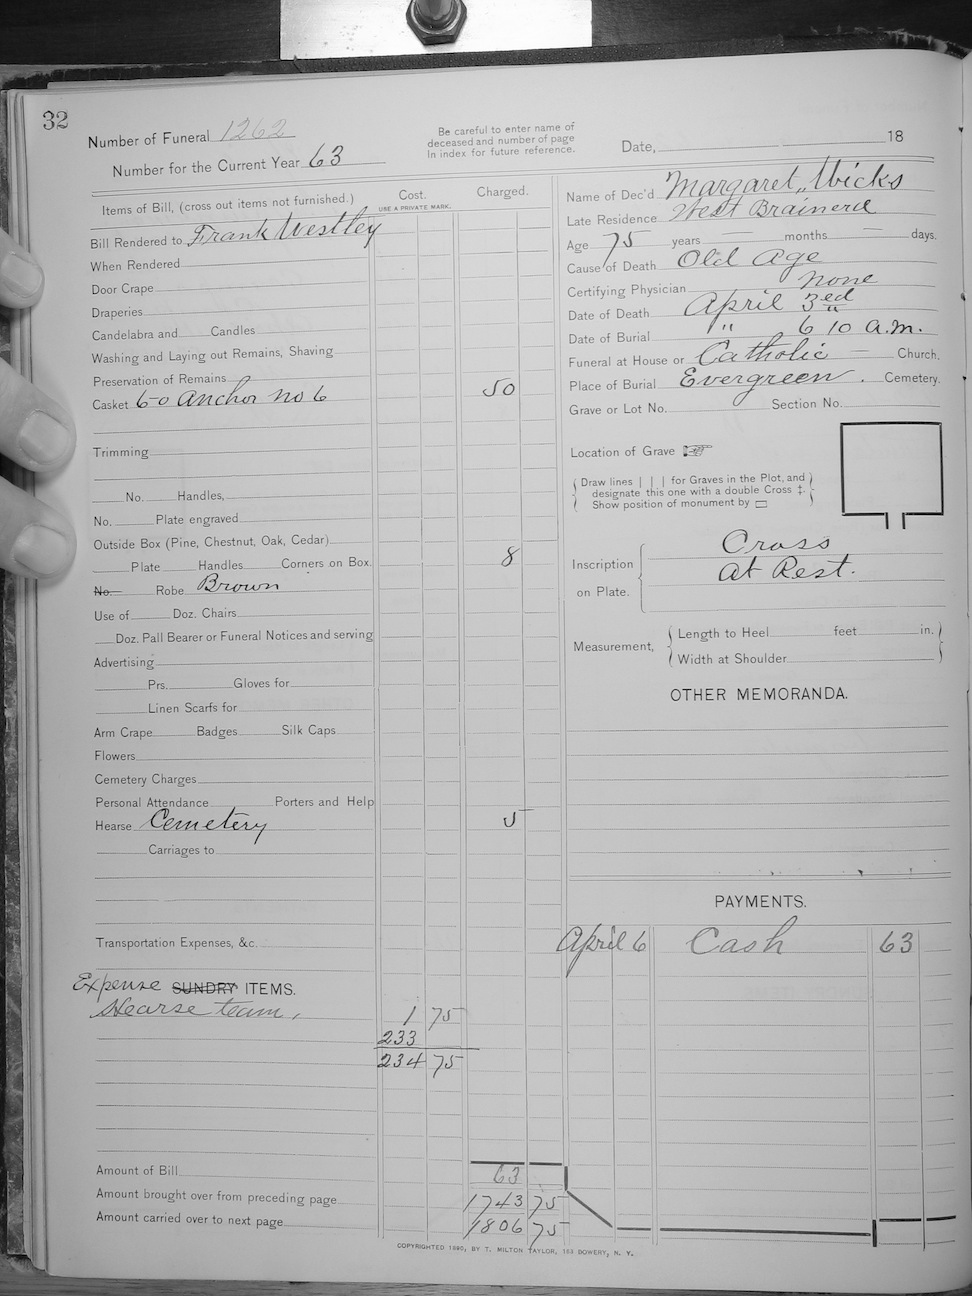 32
Number of Funeral 1262
Number for the Current Year 63
Be careful to enter name of
deceased and number of page
In index for future reference.
Date, 18
Items of Bill, (cross out items not furnished.) Cost. Charged.
USE A PRIVATE MARK.
Bill Rendered to Frank Westley
When Rendered
Door Crape
Draperies
Candelabra and Candles
Washing and Laying out Remains, Shaving
Preservation of Remains
Casket 6-0 anchor no 6 50
Trimming
No. Handles,
No. Plate engraved
Outside Box (Pine, Chestnut, Oak, Cedar)
Plate Handles Corners on Box. 8
No. Robe Brown
Use of Doz. Chairs
Doz. Pall Bearer or Funeral Notices and serving
Advertising
Prs. Gloves for
Linen Scarfs for
Arm Crape Badges Silk Caps
Flowers
Cemetery Charges
Personal Attendance Porters and Help
Hearse Cemetery 5
Carriages to
Transportation Expenses, &c.
Expense SUNDRY ITEMS.
Hearse team, 1 75
233
234 75
Amount of Bill 63
Amount brought over from preceding page 1743 75
Amount carried over to next page 1806 75
Name of Dec'd Margaret Wicks
Late Residence West Brainerd
Age 75 years — months — days.
Cause of Death Old Age
Certifying Physician none
Date of Death April 3ed
Date of Burial " 6 10 a.m.
Funeral at House or Catholic — Church.
Place of Burial Evergreen. Cemetery.
Grave or Lot No. Section No.
Location of Grave
Draw lines | | | for Graves in the Plot, and
designate this one with a double Cross ‡.
Show position of monument by ▭
Inscription on Plate.
Cross
at Rest.
Measurement,
Length to Heel feet in.
Width at Shoulder
OTHER MEMORANDA.
PAYMENTS.
April 6 Cash 63
COPYRIGHTED 1890, BY T. MILTON TAYLOR, 163 BOWERY, N. Y.